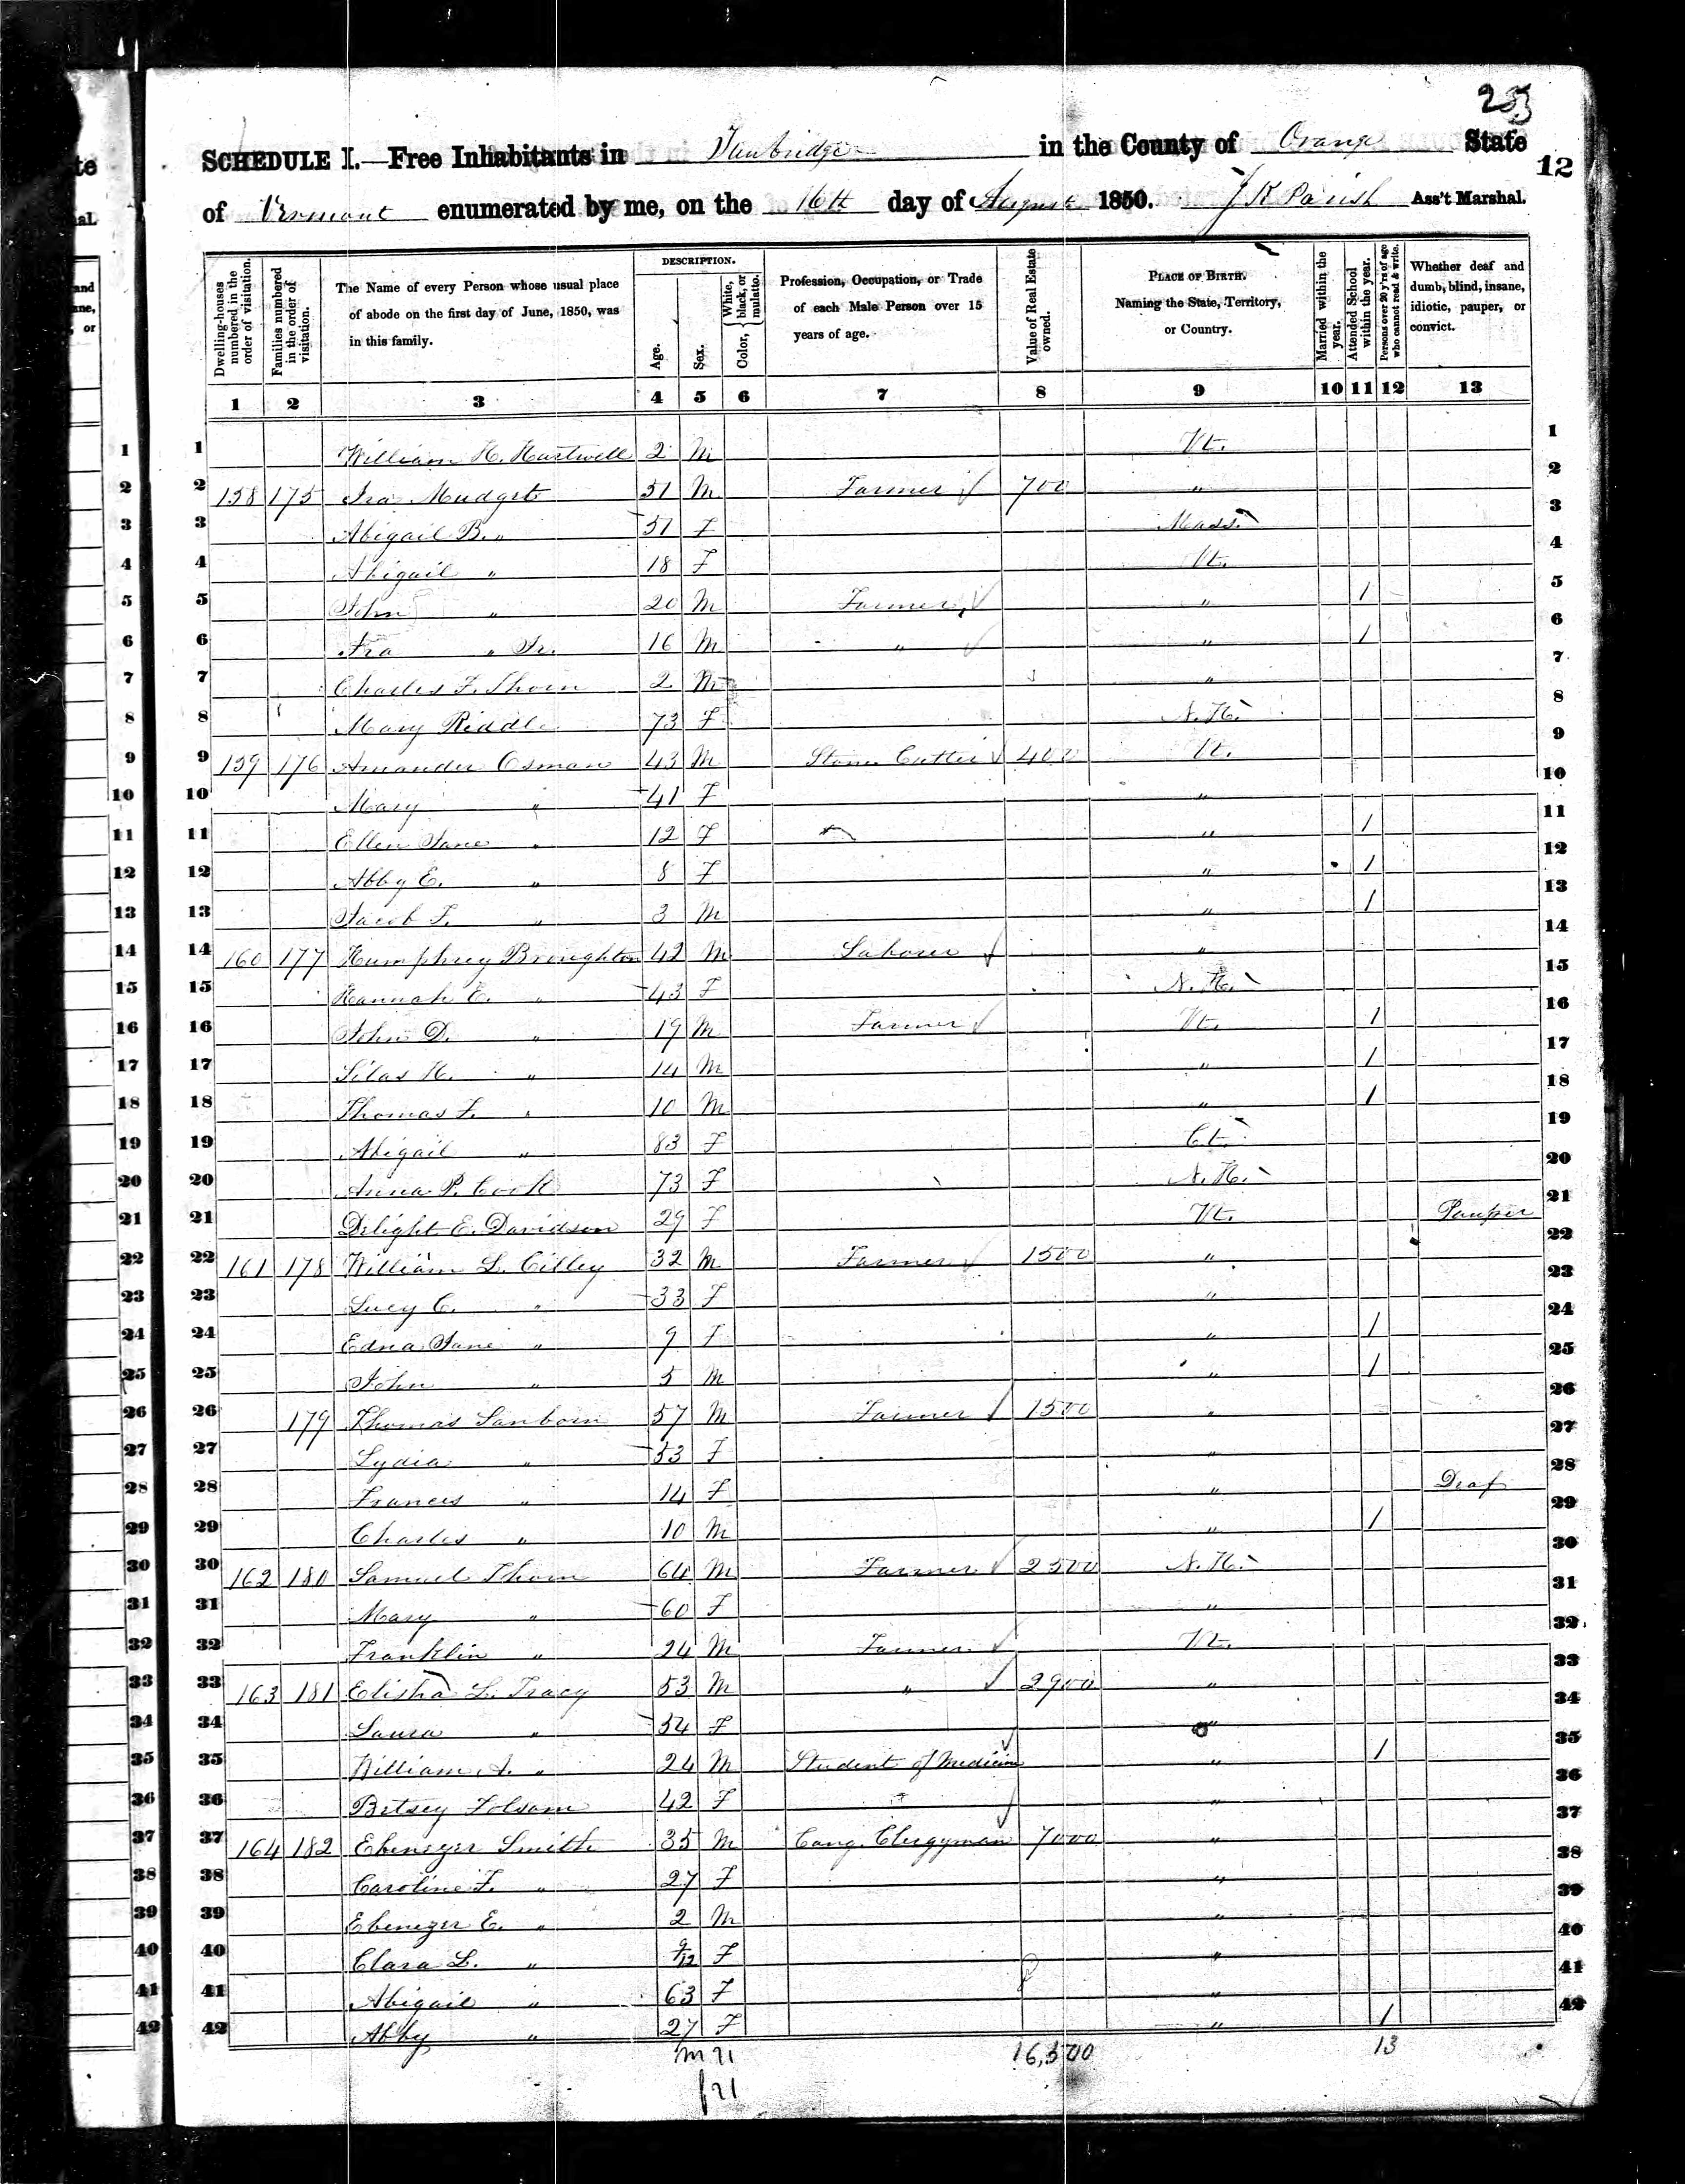 253
SCHEDULE I.—Free Inhabitants in Tunbridge in the County of Orange State
12
of Vermont enumerated by me, on the 16th day of August 1850. J K Parish Ass't Marshal.
Dwelling-houses numbered in the order of visitation. Families numbered in the order of visitation. The Name of every Person whose usual place of abode on the first day of June, 1850, was in this family. DESCRIPTION. Age. Sex. Color, { White, black, or mulatto. Profession, Occupation, or Trade of each Male Person over 15 years of age. Value of Real Estate owned. PLACE OF BIRTH. Naming the State, Territory, or Country. Married within the year. Attended School within the year. Persons over 20 y'rs of age who cannot read & write. Whether deaf and dumb, blind, insane, idiotic, pauper, or convict.
1 2 3 4 5 6 7 8 9 10 11 12 13
1 William H. Hartwell 2 M Vt. 1
2 158 175 Ira Mudget 51 M Farmer 700 " 2
3 Abigail B. " 51 F Mass. 3
4 Abigail " 18 F Vt. 4
5 John " 20 M Farmer " 1 5
6 Ira " Jr. 16 M " " 1 6
7 Charles F. Thorn 2 M " 7
8 Mary Riddle 73 F N.H. 8
9 159 176 Amander Osman 43 M Stone Cutter 400 Vt. 9
10 Mary " 41 F " 10
11 Ellen Jane " 12 F " 1 11
12 Abby E. " 8 F " 1 12
13 Jacob F. " 3 M " 1 13
14 160 177 Humphrey Broughton 42 M Laborer " 14
15 Hannah E. " 43 F N.H. 15
16 John D. " 19 M Farmer Vt. 1 16
17 Silas H. " 14 M " 1 17
18 Thomas F. " 10 M " 1 18
19 Abigail " 83 F Ct. 19
20 Anna P. Cook 73 F N.H. 20
21 Delight E. Davidson 29 F Vt. Pauper 21
22 161 178 William L. Cilley 32 M Farmer 1500 " 22
23 Lucy C. " 33 F " 23
24 Edna Jane " 9 F " 1 24
25 John " 5 M " 1 25
26 179 Thomas Sanborn 57 M Farmer 1500 " 26
27 Lydia " 53 F " 27
28 Frances " 14 F " Deaf 28
29 Charles " 10 M " 1 29
30 162 180 Samuel Thorn 64 M Farmer 2500 N.H. 30
31 Mary " 60 F " 31
32 Franklin " 24 M Farmer Vt. 32
33 163 181 Elisha L. Tracy 53 M " 2900 " 33
34 Laura " 54 F " 34
35 William A. " 24 M Student of Medicin " 1 35
36 Betsey Folsom 42 F " 36
37 164 182 Ebenezer Smith 35 M Cong. Clergyman 7000 " 37
38 Caroline F. " 27 F " 38
39 Ebenezer E. " 2 M " 39
40 Clara L. " 9/12 F " 40
41 Abigail " 63 F " 41
42 Abby " 27 F " 1 42
m 21 16,500 13
f 21